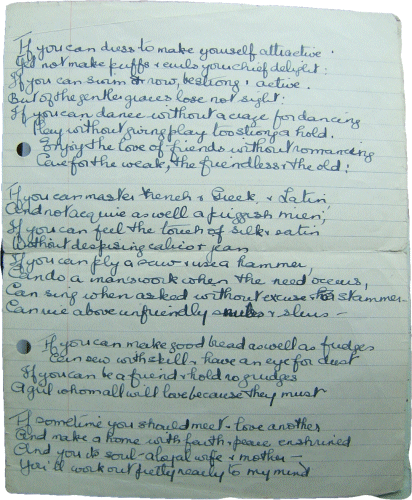 If you can dress to make yourself attractive.
Yet not make puffs & curls your chief delight:
If you can swim & row, be strong & active.
But of the gentler graces lose not sight:
If you can dance without a craze for dancing
Play without giving play too strong a hold.
Enjoy the love of friends without romancing
Care for the weak, the friendless & the old:
If you can master French & Greek & Latin,
And not acquire as well a priggish mien,
If you can feel the touch of silk & satin
Without despising calico & jean
If you can ply a saw & use a hammer,
Can do a man's work when the need occurs,
Can sing when asked without excuse or stammer
Can rise above unfriendly snubs & slurs -
If you can make good bread as well as fudges
Can sew with skill & have an eye for dust
If you can be a friend & hold no grudges
A girl whom all will love because they must
If sometime you should meet & love another
And make a home with faith & peace enshrined
And you its soul - a loyal wife & mother -
You'll work out pretty nearly to my mind